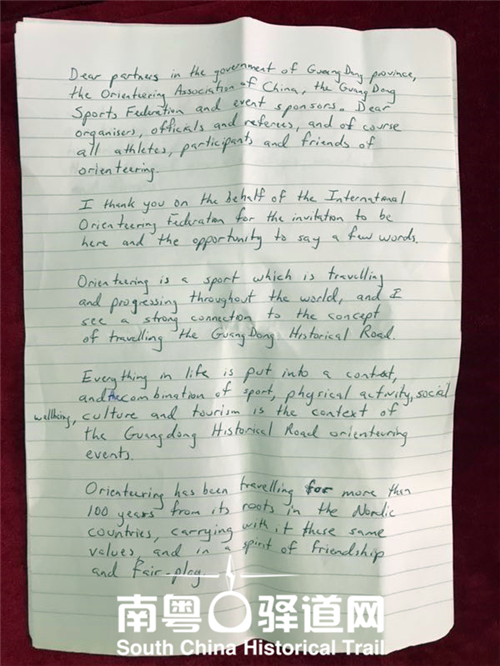 Dear partners in the government of GuangDong province,
the Orienteering Association of China, the GuangDong
Sports Federation and event sponsors. Dear
organisers, officials and referees, and of course
all athletes, participants and friends of
orienteering.
I thank you on the behalf of the International
Orienteering Federation for the invitation to be
here and the opportunity to say a few words.
Orienteering is a sport which is travelling
and progressing throughout the world, and I
see a strong connection to the concept
of travelling the GuangDong Historical Road.
Everything in life is put into a context,
and the combination of sport, physical activity, social
wellbeing, culture and tourism is the context of
the Guangdong Historical Road orienteering
events.
Orienteering has been travelling for more than
100 years from its roots in the Nordic
countries, carrying with it these same
values, and in a spirit of friendship
and fair-play.
南粤 驿道网
South China Historical Trail